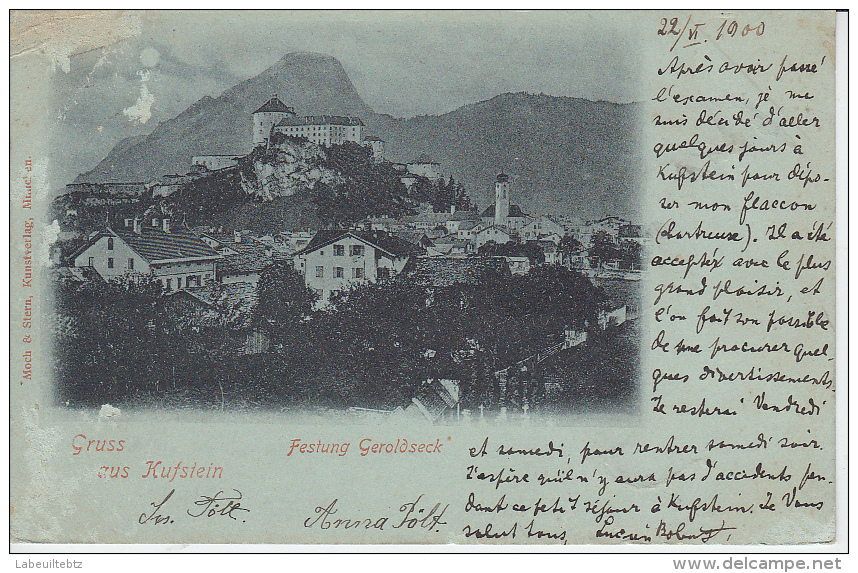 22/VI. 1900
Après avoir passé
l'examen, je me
suis décidé d'aller
quelques jours à
Kufstein pour dépo-
ser mon flaccon
(chartreuse). Il a été
accepté avec le plus
grand plaisir, et
l'on fait son possible
de me procurer quel-
ques divertissements.
Je resterai Vendredi
et samedi, pour rentrer samedi soir.
J'espère qu'il n'y aura pas d'accidents pen-
dant ce petit séjour à Kufstein. Je Vous
salut tous, Lucien
Moch & Stern, Kunstverlag, München.
Gruss
aus Kufstein
Festung Geroldseck
Jos. Pölt.
Anna Pölt.
Labeuiltebtz
www.delcampe.net